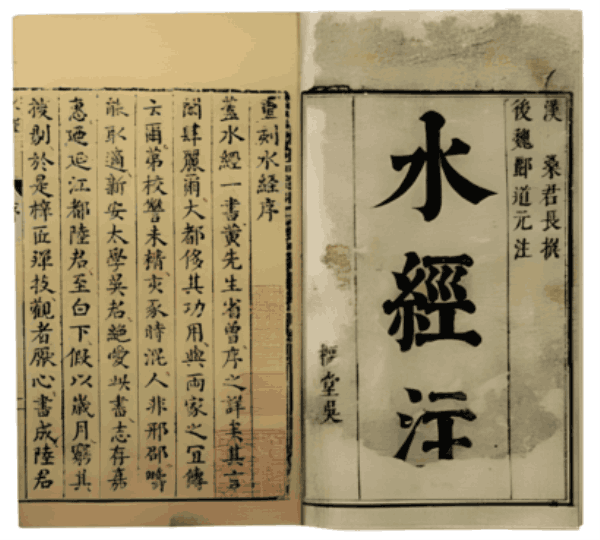 漢 桑君長撰
後魏酈道元注
水經注
槐堂吳
重刻水经序
蓋水經一書黃先生省曾序之詳矣其言
閎肆麗爾大都侈其功用與兩家之宜傳
云爾第校讐未精亥豕時混人非邢邵疇
能取適新安太學吳君絕愛此書志存嘉
惠迺延江都陸君至白下假以歲月窮其
授剞於是梓匠殫技觀者厭心書成陸君